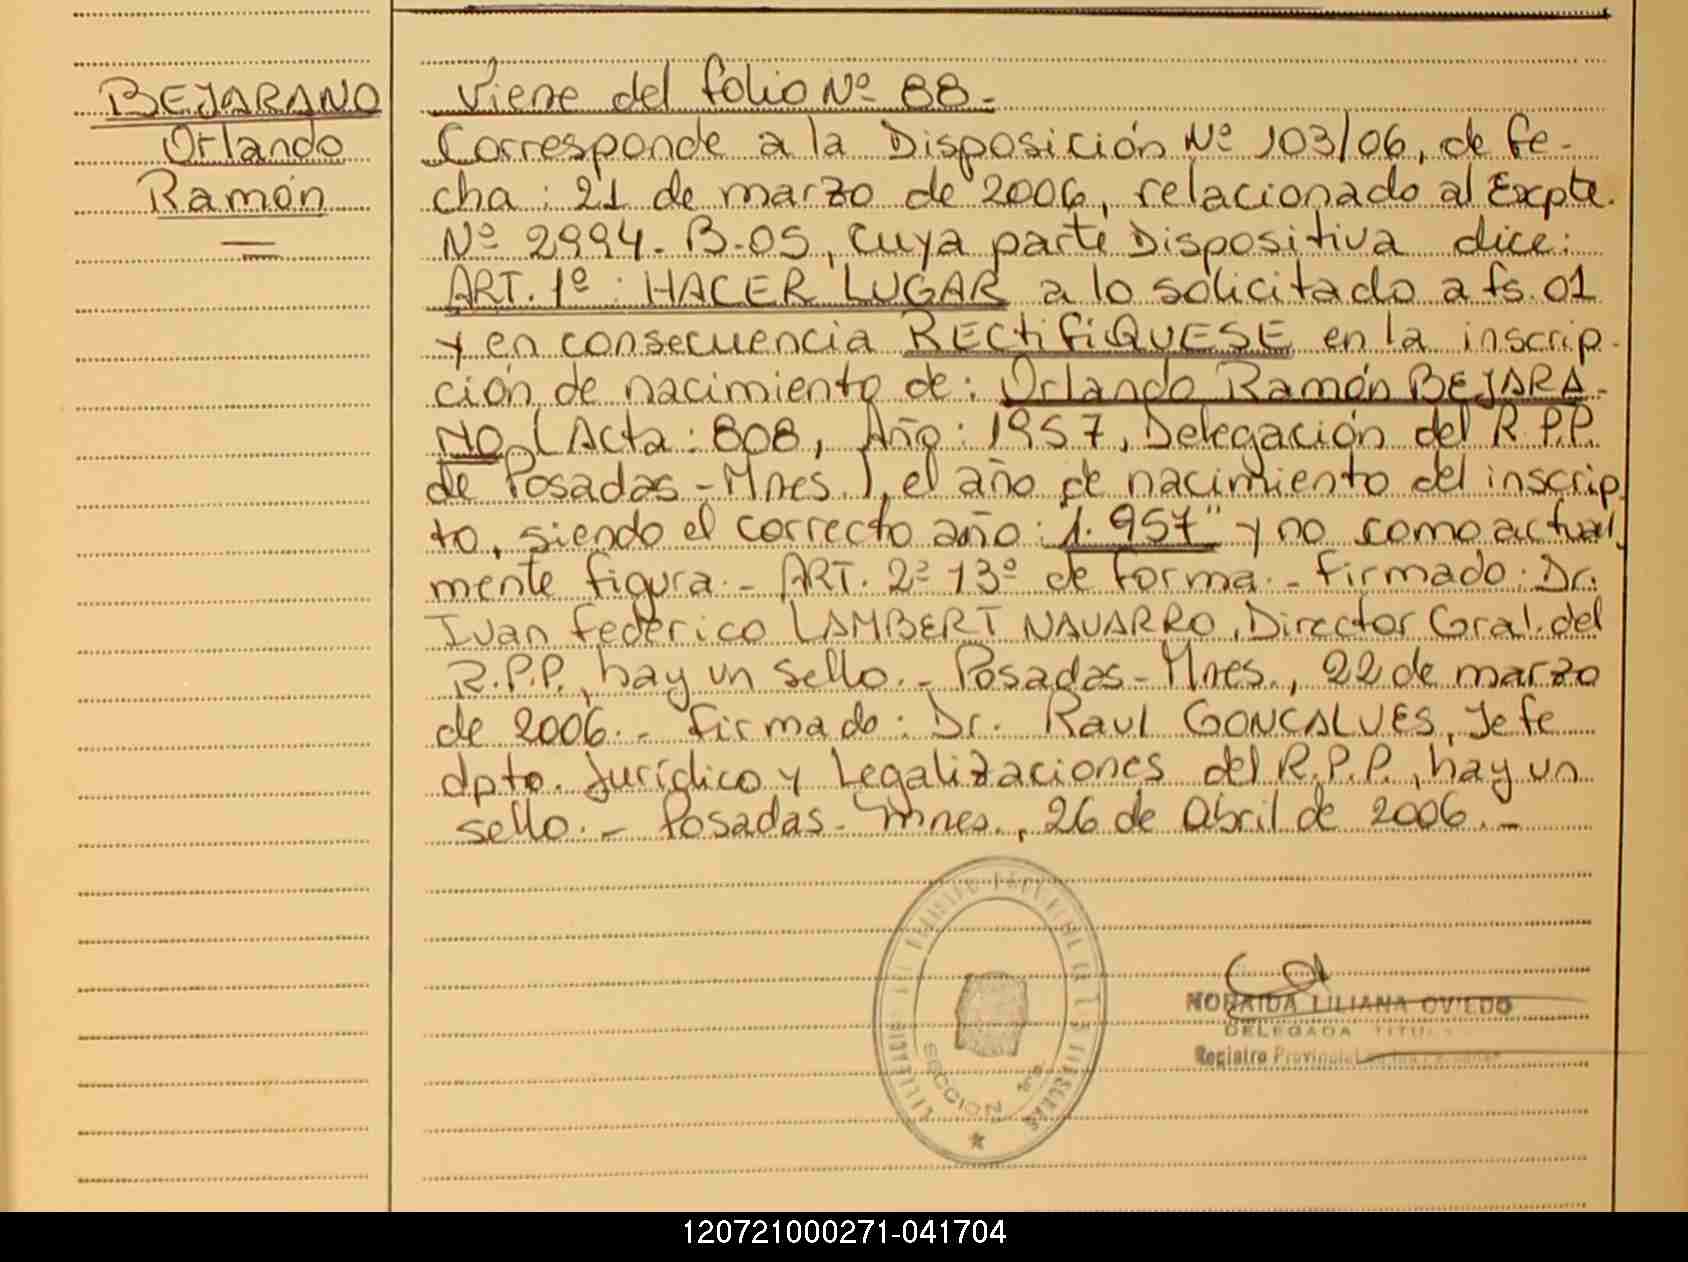 BEJARANO
Orlando
Ramón
Viene del folio Nº 88.-
Corresponde a la Disposición Nº 103/06, de fe-
cha: 21 de marzo de 2006, relacionado al Expte.
Nº 2994-B-05, cuya parte Dispositiva dice:
ART. 1º: HACER LUGAR a lo solicitado a fs. 01
y en consecuencia RECTIFIQUESE en la inscrip-
ción de nacimiento de: Orlando Ramón BEJARA-
NO (Acta: 808, Año: 1957, Delegación del R.P.P.
de Posadas-Mnes.), el año de nacimiento del inscrip-
to, siendo el correcto año: 1.957" y no como actual-
mente figura.- ART. 2º 13º de forma.- Firmado: Dr.
Ivan Federico LAMBERT NAVARRO, Director Gral. del
R.P.P., hay un sello.- Posadas-Mnes., 22 de marzo
de 2006.- Firmado: Dr. Raul GONCALVES, Jefe
dpto. Jurídico y Legalizaciones del R.P.P., hay un
sello.- Posadas-Mnes., 26 de Abril de 2006.-
SECCION 1ra
NORAIDA LILIANA OVIEDO
DELEGADA
Registro Provincial
120721000271-041704